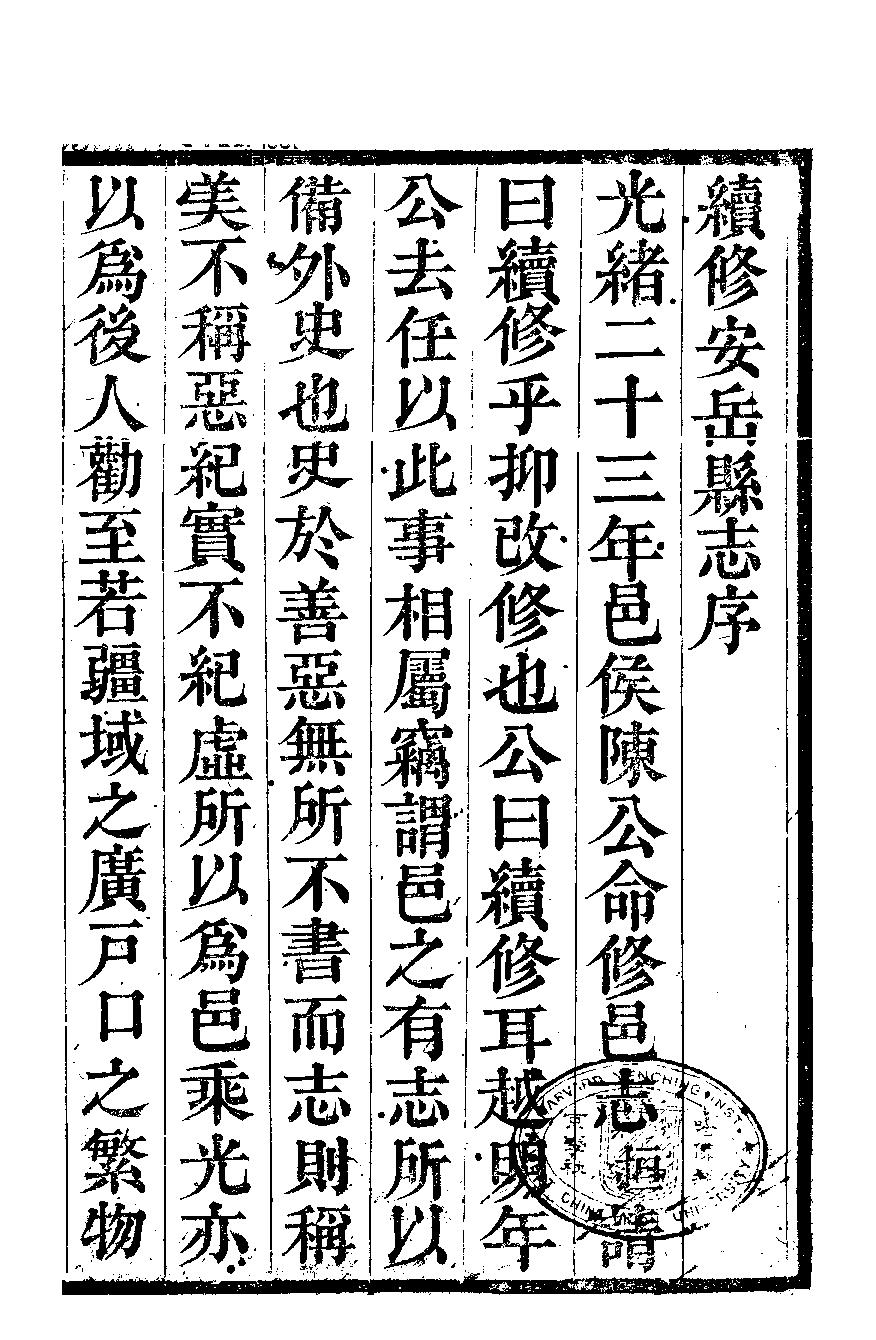 續修安岳縣志序
光緒二十三年邑侯陳公命修邑志垣請
曰續修乎抑改修也公曰續修耳越明年
公去任以此事相屬竊謂邑之有志所以
備外史也史於善惡無所不書而志則稱
美不稱惡紀實不紀虛所以為邑乘光亦
以為後人勸至若疆域之廣戶口之繁物